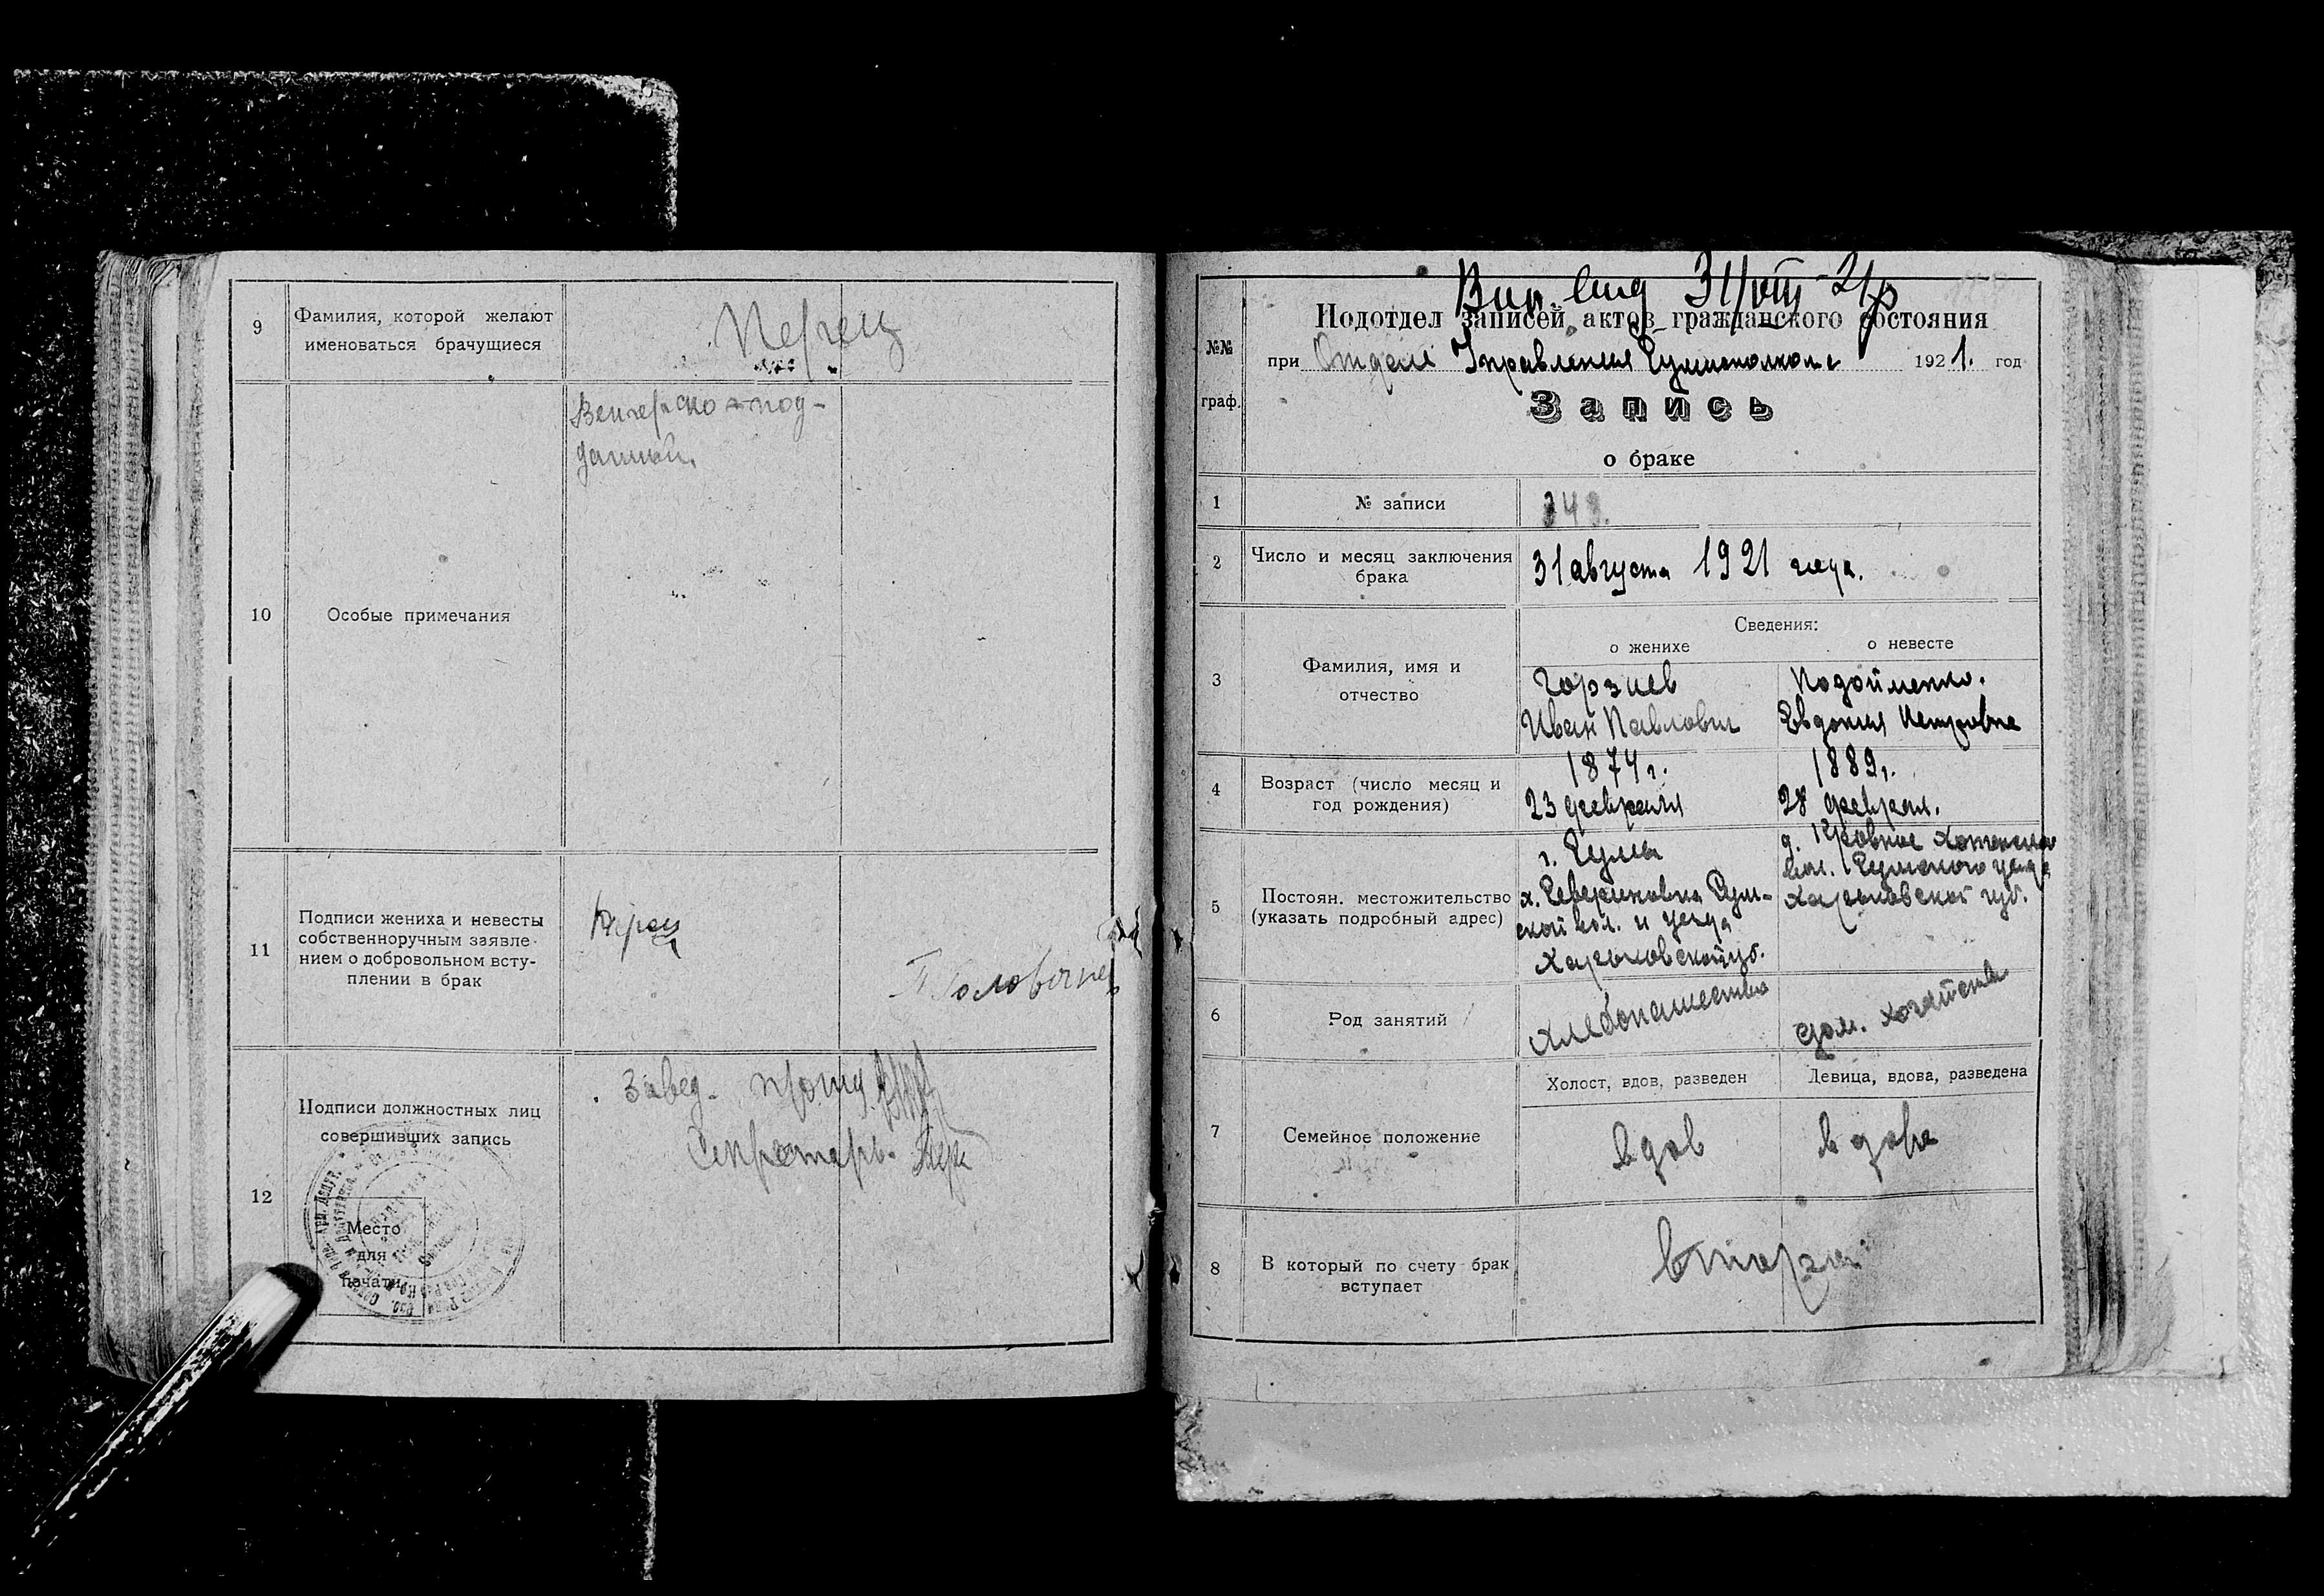 9
Фамилия, которой желают
именоваться брачущиеся
Перец
10
Особые примечания
Венгерско-под-
данный.
11
Подписи жениха и невесты
собственноручным заявле-
нием о добровольном всту-
плении в брак
Головач
12
Подписи должностных лиц
совершивших запись
Завед.
Секретарь.
Место
для
печати
31/VIII-21
№№
граф.
Подотдел записей актов гражданского состояния
при Отделе Управления 1921. год
Запись
о браке
1
№ записи
343.
2
Число и месяц заключения
брака
31 августа 1921 года.
Сведения:
о женихе
о невесте
3
Фамилия, имя и
отчество
Горзиев
Иван Павлович
Подойменко.
Евдокия Петровна
4
Возраст (число месяц и
год рождения)
1874 г.
23 февраля
1889 г.
28 февраля.
5
Постоян. местожительство
(указать подробный адрес)
г. Сумы
х. Севериновка Сум-
ской вол. и уезда
Харьковской губ.
вол. Сумского уезда
Харьковской губ.
6
Род занятий
Хлебопашество
дом. хозяйства
7
Семейное положение
Холост, вдов, разведен
Девица, вдова, разведена
вдов
вдова
8
В который по счету брак
вступает